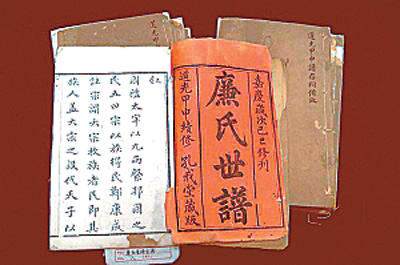 嘉慶歲次己巳修刊
廉氏世譜
道光甲申續修
孔戒堂藏版
周禮太宰以九両繫邦國之
民五曰宗以族得民鄭康成
註宗謂大宗收族者民即其
族人蓋大宗之設代天子以
道光甲申譜
道光甲申